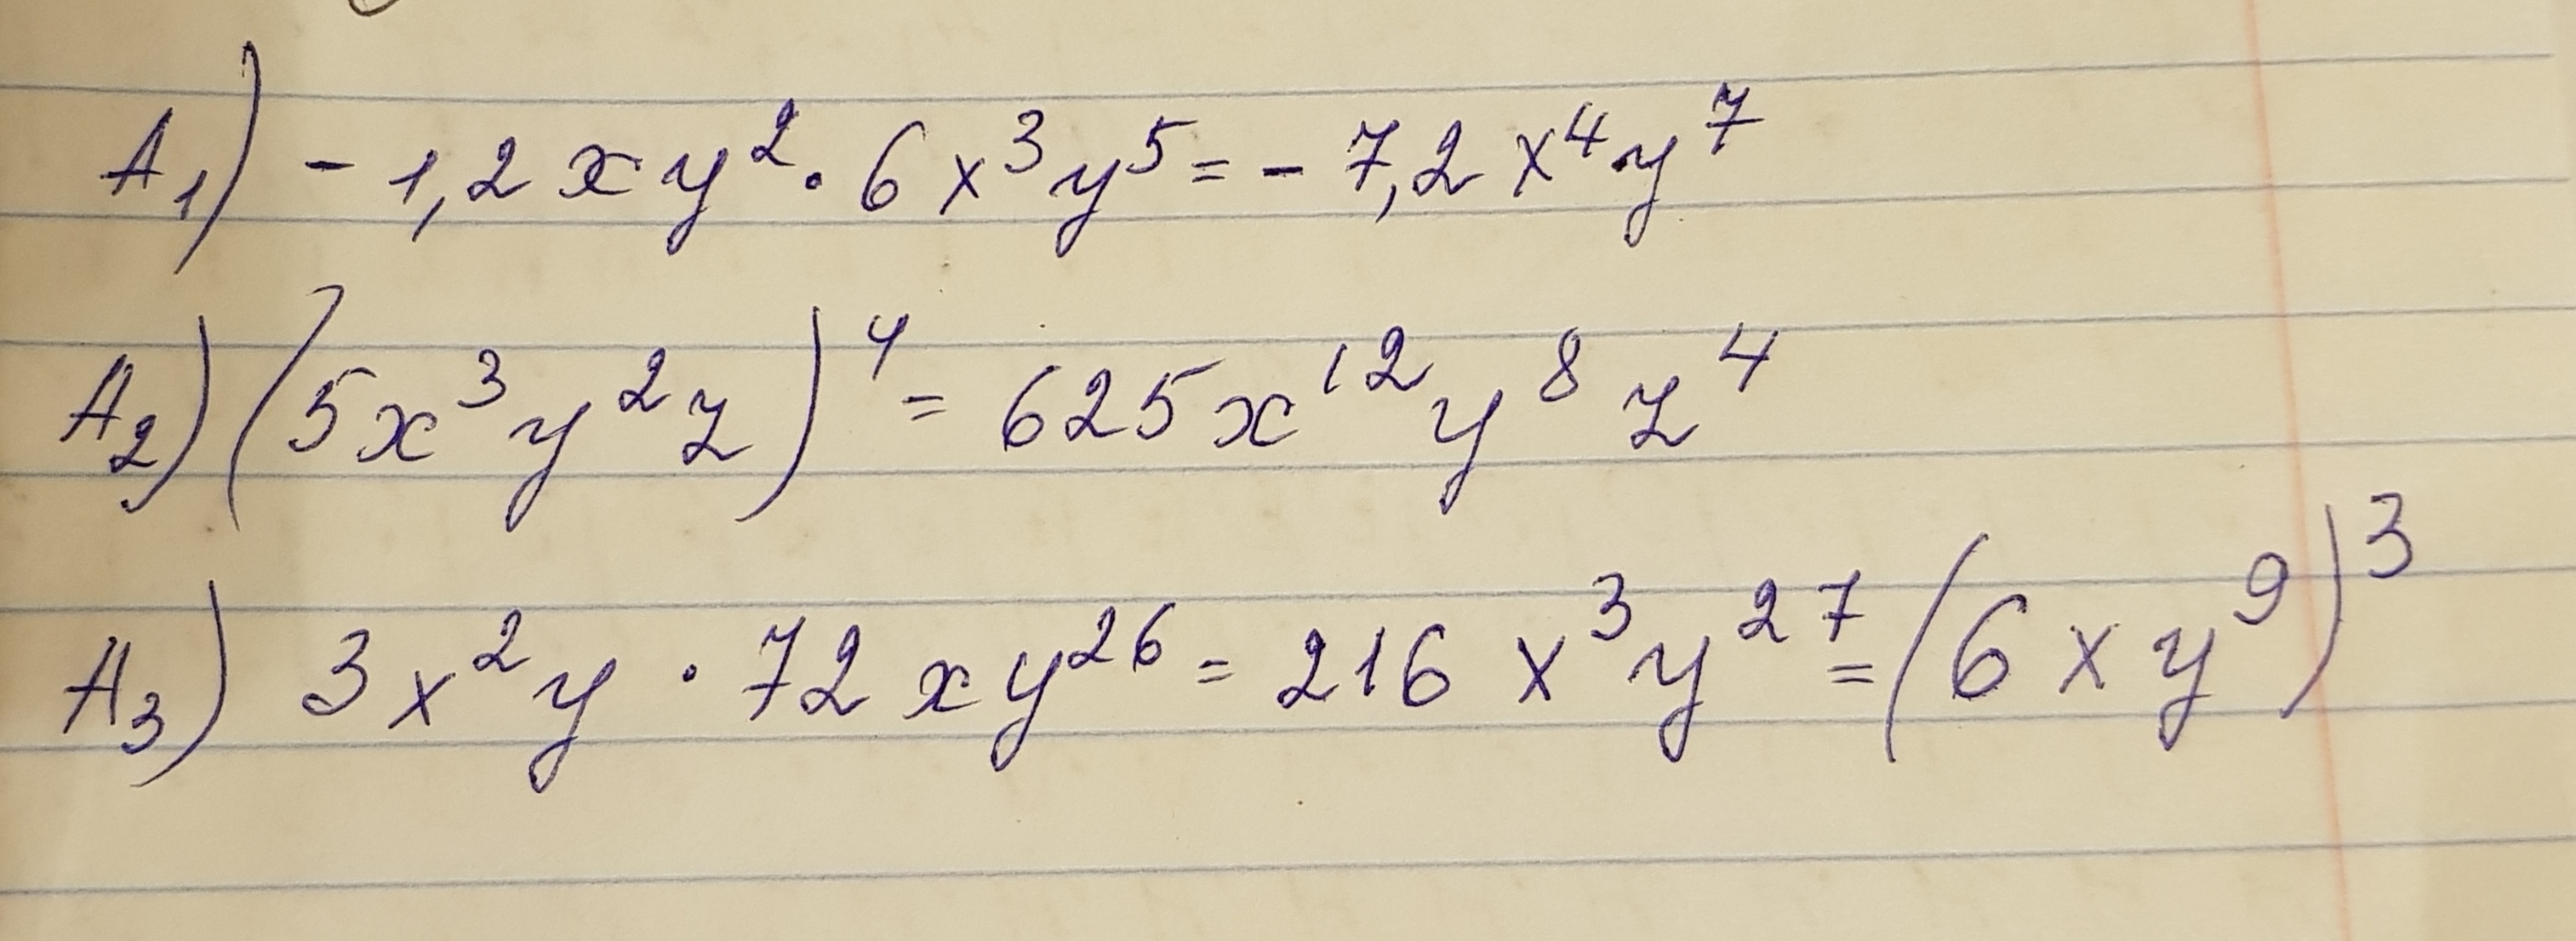 A₁) - 1,2 x y² · 6 x³ y⁵ = - 7,2 x⁴ y⁷
A₂) (5x³ y² z)⁴ = 625 x¹² y⁸ z⁴
A₃) 3 x² y · 72 x y²⁶ = 216 x³ y²⁷ = (6 x y⁹)³